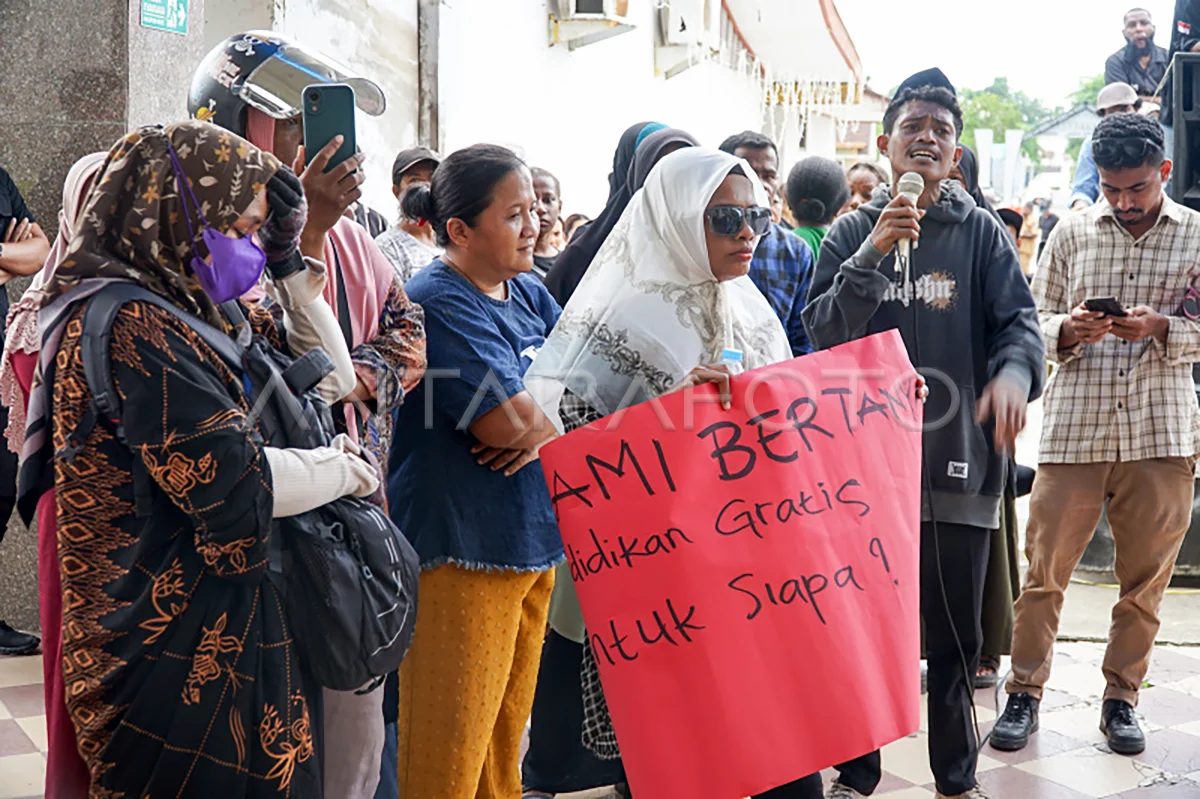 AMI BERTAN
didikan Gratis
ntuk Siapa?
ANTARAFOTO